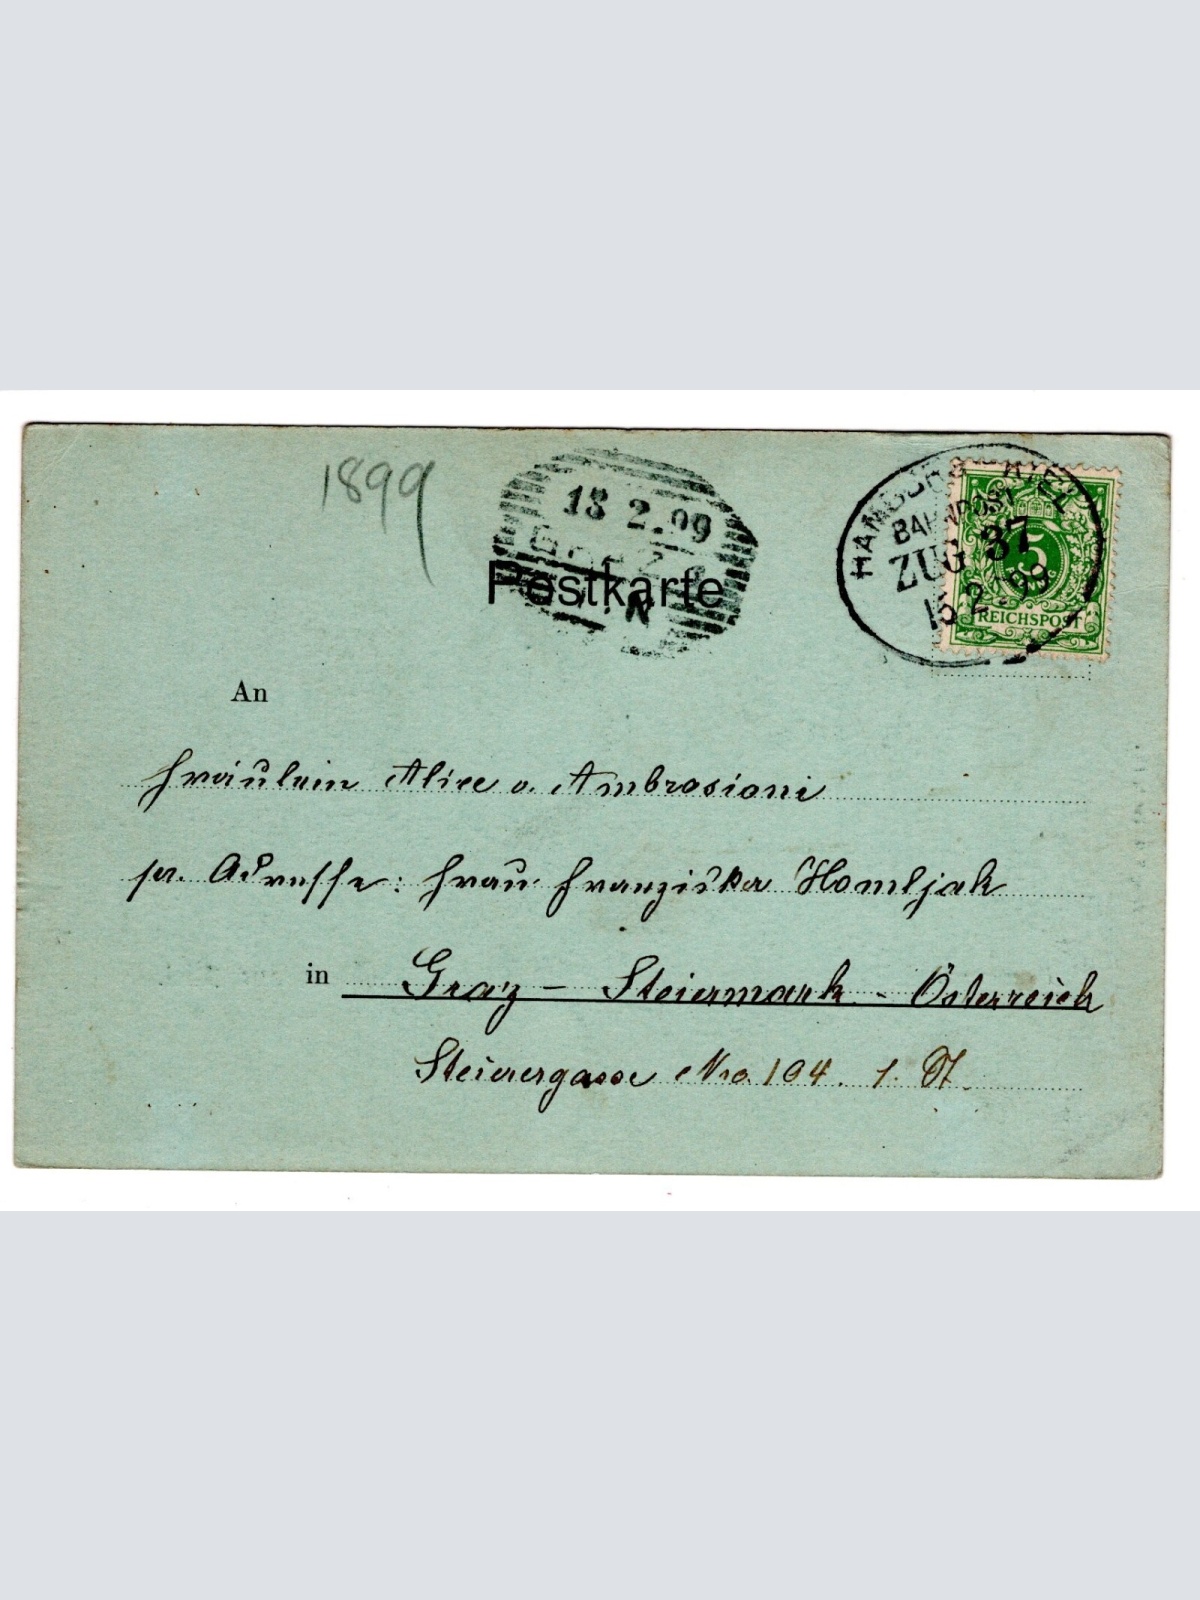 1899
18 2.99
GRAZ
Postkarte
HAMBURG - KIEL
BAHNPOST
ZUG 37
15 2 99
5
REICHSPOST
An
Fräulein Alice v. Ambrosioni
pr. Adresse: Frau Franziska Homljak
in Graz – Steiermark - Österreich
Steierergasse Nro. 104. 1. St.